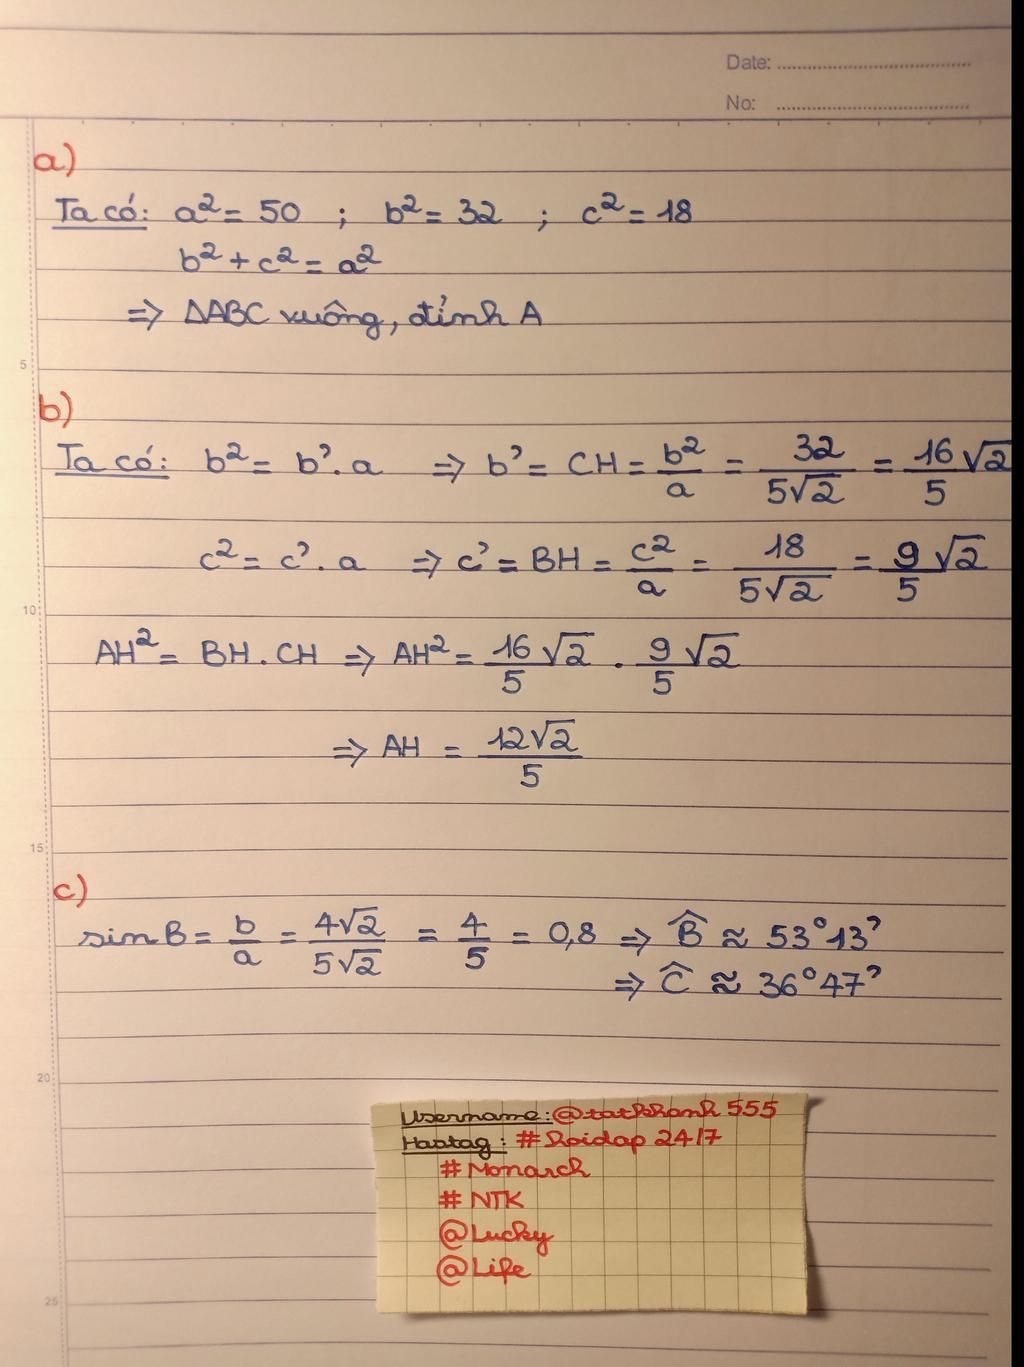 Date: ................................
No: ................................
a)
Ta có: a² = 50 ; b² = 32 ; c² = 18
b² + c² = a²
=> ΔABC vuông, đỉnh A
5
b)
Ta có: b² = b'. a => b' = CH = b²/a = 32/5√2 = 16√2/5
c² = c'. a => c' = BH = c²/a = 18/5√2 = 9/5 √2
10
AH² = BH . CH => AH² = 16/5 √2 . 9/5 √2
=> AH = 12√2/5
15
c)
sin B = b/a = 4√2/5√2 = 4/5 = 0,8 => B̂ ≈ 53°13'
=> Ĉ ≈ 36°47'
20
Username: @tatkhanh 555
Hastag: # hoidap 24/7
# Monarch
# NTK
@Lucky
@Life
25